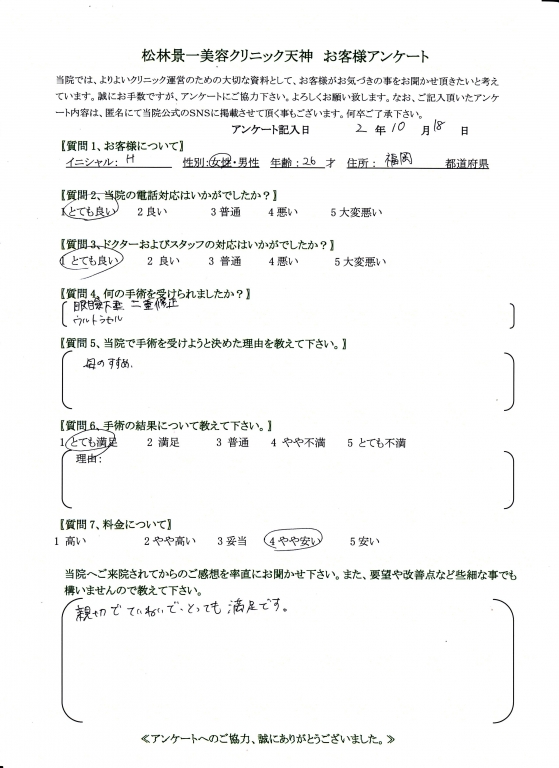 松林景一美容クリニック天神　お客様アンケート
当院では、よりよいクリニック運営のための大切な資料として、お客様がお気づきの事をお聞かせ頂きたいと考え
ています。誠にお手数ですが、アンケートにご協力下さい。よろしくお願い致します。なお、ご記入頂いたアンケ
ート内容は、匿名にて当院公式のSNSに掲載させて頂く事もございます。何卒ご了承下さい。
アンケート記入日　2 年 10 月 18 日
【質問 1、お客様について】
イニシャル： H　性別:女性・男性　年齢：26 才　住所： 福岡　都道府県
【質問 2、当院の電話対応はいかがでしたか？】
1 とても良い　2 良い　3 普通　4 悪い　5 大変悪い
【質問 3、ドクターおよびスタッフの対応はいかがでしたか？】
1 とても良い　2 良い　3 普通　4 悪い　5 大変悪い
【質問 4、何の手術を受けられましたか？】
眼瞼下垂 二重修正
ウルトラセル
【質問 5、当院で手術を受けようと決めた理由を教えて下さい。】
母のすすめ.
【質問 6、手術の結果について教えて下さい。】
1 とても満足　2 満足　3 普通　4 やや不満　5 とても不満
理由：
【質問 7、料金について】
1 高い　2 やや高い　3 妥当　4 やや安い　5 安い
当院へご来院されてからのご感想を率直にお聞かせ下さい。また、要望や改善点など些細な事でも
構いませんので教えて下さい。
親切でていねいで、とっても 満足です。
≪アンケートへのご協力、誠にありがとうございました。≫